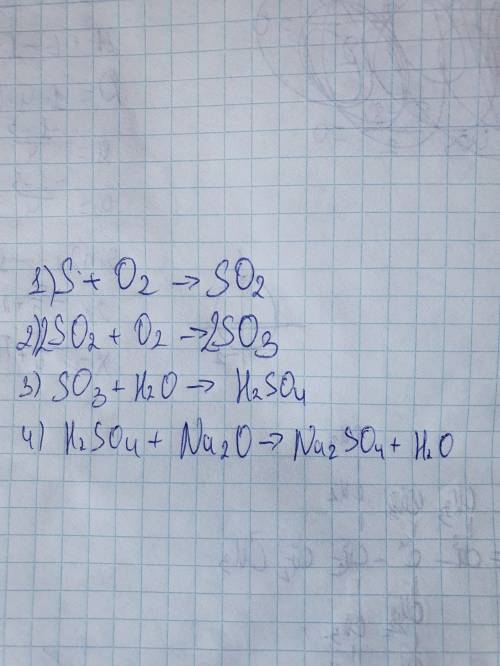 1) S + O2 → SO2
2) 2SO2 + O2 → 2SO3
3) SO3 + H2O → H2SO4
4) H2SO4 + Na2O → Na2SO4 + H2O